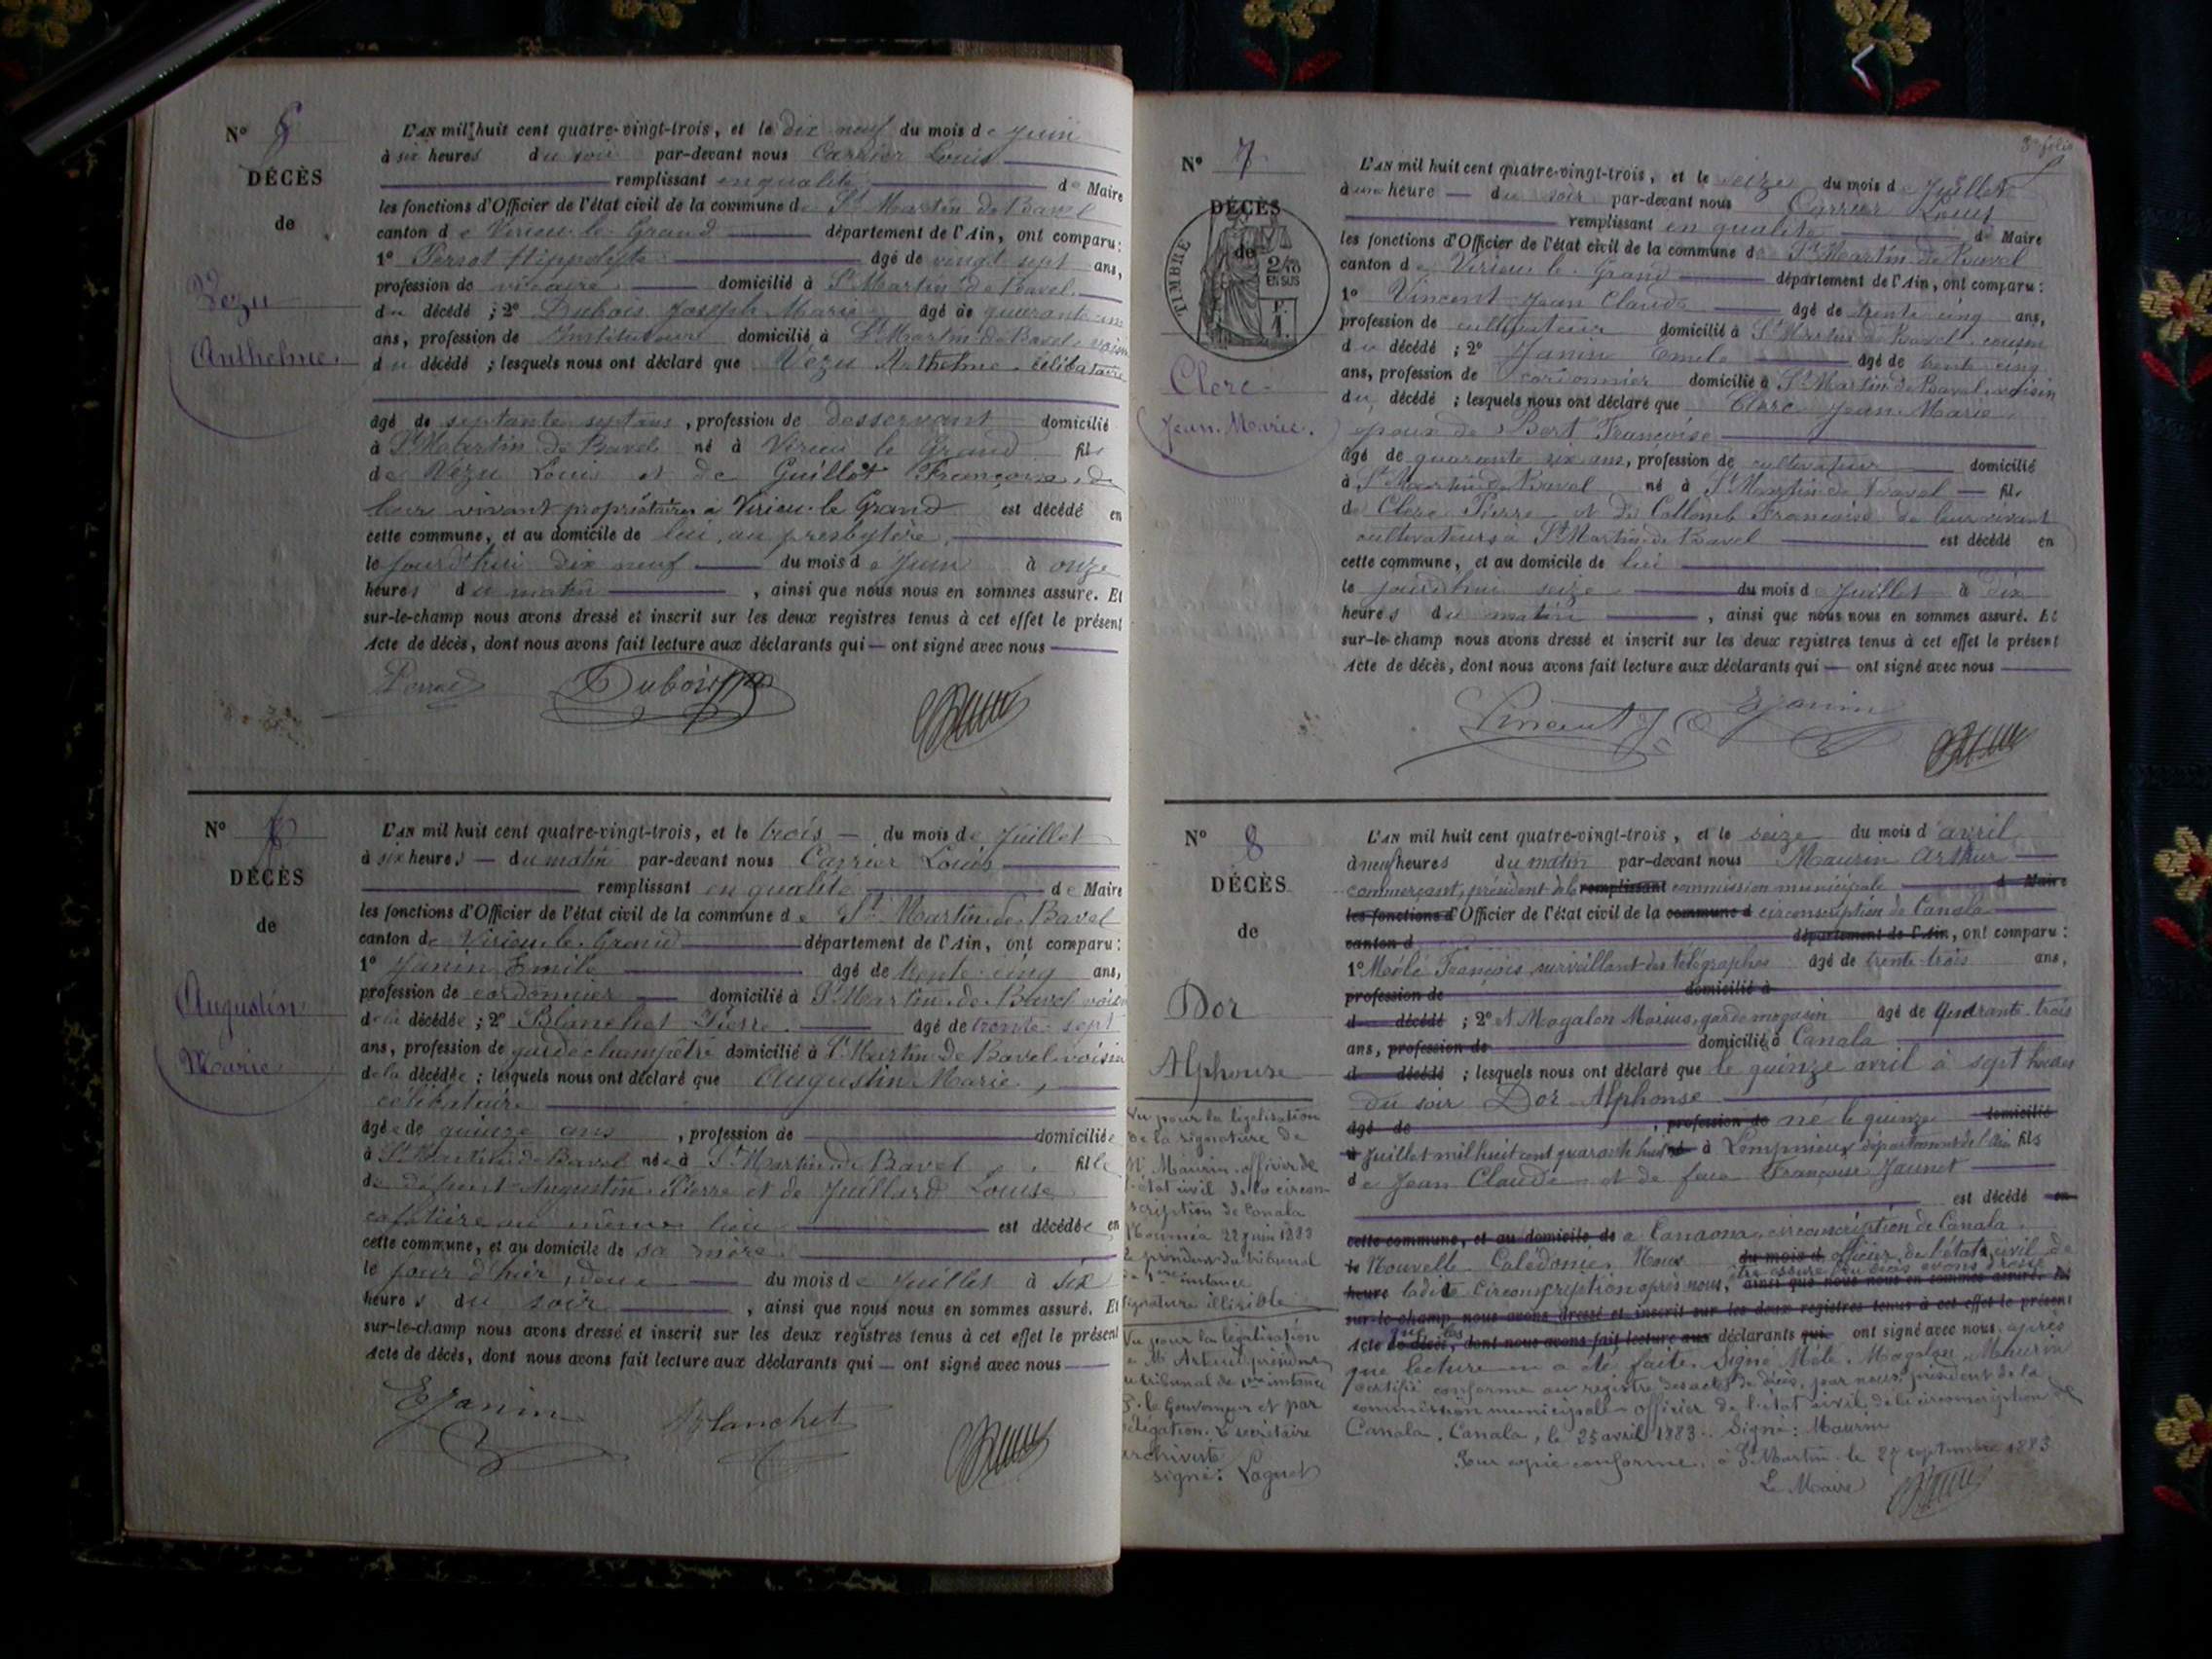 N°
DÉCÈS
de
Vezu
Anthelme.
L'AN mil huit cent quatre-vingt-trois, et le dix neuf du mois de Juin
à six heures du soir par-devant nous Carrier Louis
remplissant en qualité de Maire
les fonctions d'Officier de l'état civil de la commune de St Martin de Bavel
canton de Virieu-le-Grand département de l'Ain, ont comparu:
1° Perrot Hippolyte âgé de vingt sept ans,
profession de vicaire domicilié à St Martin de Bavel
du décédé ; 2° Dubois Joseph Marie âgé de quarante un
ans, profession de Instituteur domicilié à St Martin de Bavel voisin
du décédé ; lesquels nous ont déclaré que Vezu Anthelme célibataire
âgé de septante sept ans, profession de desservant domicilié
à St Martin de Bavel né à Virieu le Grand fils
de Vezu Louis et de Guillot Françoise, de
leur vivant propriétaires à Virieu-le-Grand est décédé en
cette commune, et au domicile de lui, au presbytère,
le jourd'hui dix neuf du mois de Juin à onze
heures du matin , ainsi que nous nous en sommes assuré. Et
sur-le-champ nous avons dressé et inscrit sur les deux registres tenus à cet effet le présent
Acte de décès, dont nous avons fait lecture aux déclarants qui — ont signé avec nous
Dubois
N°
DÉCÈS
de
Augustin
Marie
L'AN mil huit cent quatre-vingt-trois, et le trois du mois de Juillet
à six heures — du matin par-devant nous Carrier Louis
remplissant en qualité de Maire
les fonctions d'Officier de l'état civil de la commune de St Martin de Bavel
canton de Virieu-le-Grand département de l'Ain, ont comparu:
1° Janin Emile âgé de trente cinq ans,
profession de cordonnier domicilié à St Martin-de-Bavel voisin
de la décédée ; 2° Blanchet Pierre âgé de trente sept
ans, profession de garde champêtre domicilié à St Martin de Bavel voisin
de la décédée ; lesquels nous ont déclaré que Augustin Marie,
célibataire
âgée de quinze ans , profession de domiciliée
à St Martin de Bavel née à St Martin de Bavel fille
de défunt Augustin Pierre et de Juillard Louise
au même lieu est décédée en
cette commune, et au domicile de sa mère
le jour d'hier, deux du mois de Juillet à six
heures du soir , ainsi que nous nous en sommes assuré. Et
sur-le-champ nous avons dressé et inscrit sur les deux registres tenus à cet effet le présent
Acte de décès, dont nous avons fait lecture aux déclarants qui — ont signé avec nous
EJanin Blanchet
3e folio
N° 7
DÉCÈS
de
TIMBRE
2/10
EN SUS
Clerc
Jean-Marie.
L'AN mil huit cent quatre-vingt-trois, et le seize du mois de Juillet
à une heure — du soir par-devant nous Carrier Louis
remplissant en qualité de Maire
les fonctions d'Officier de l'état civil de la commune de St Martin de Bavel
canton de Virieu le Grand département de l'Ain, ont comparu:
1° Vincent Jean Claude âgé de trente cinq ans,
profession de cultivateur domicilié à St Martin de Bavel, cousin
du décédé ; 2° Janin Emile âgé de trente cinq
ans, profession de cordonnier domicilié à St Martin de Bavel voisin
du décédé ; lesquels nous ont déclaré que Clerc Jean Marie
époux de Bert Françoise
âgé de quarante six ans, profession de cultivateur domicilié
à St Martin de Bavel né à St Martin de Bavel — fils
de Clerc Pierre et de Collomb Françoise de leur vivant
cultivateurs à St Martin de Bavel est décédé en
cette commune, et au domicile de lui
le jourd'hui seize du mois de Juillet à dix
heures du matin , ainsi que nous nous en sommes assuré. Et
sur-le-champ nous avons dressé et inscrit sur les deux registres tenus à cet effet le présent
Acte de décès, dont nous avons fait lecture aux déclarants qui — ont signé avec nous
Vincent J C EJanin
N° 8
DÉCÈS
de
Dor
Alphonse
Vu pour la légalisation
de la signature de
M. Maurin officier de
l'état civil de la circon-
scription de Canala
Nouméa 22 juin 1883
Le président du tribunal
de 1ère instance
Signature illisible
Vu pour la légalisation
de M. président
du tribunal de 1ère instance
P. le Gouverneur et par
délégation. Le secrétaire
archiviste
signé: Laguet
L'AN mil huit cent quatre-vingt-trois, et le seize du mois d'avril
à neuf heures du matin par-devant nous Maurin Arthur
commerçant, président de la remplissant commission municipale d Maire
les fonctions d'Officier de l'état civil de la commune d circonscription de Canala
canton d département de l'Ain, ont comparu:
1° François surveillant des télégraphes âgé de trente-trois ans,
profession de domicilié à
d décédé ; 2° et Magalon Marius, garde magasin âgé de Quarante-trois
ans, profession de domiciliés à Canala
d décédé ; lesquels nous ont déclaré que le quinze avril à sept heures
du soir Dor Alphonse
âgé de , profession de né le quinze domicilié
à Juillet mil huit cent quarante huit né à Lompnieux département de l'Ain fils
de Jean Claude et de feue Françoise Jaunet
est décédé en
cette commune, et au domicile de à circonscription de Canala
le Nouvelle Calédonie. Nous du mois d officier de l'état civil de
heure ladite Circonscription après nous, être assuré du décès avons dressé ainsi que nous nous en sommes assuré. Et
sur-le-champ nous avons dressé et inscrit sur les deux registres tenus à cet effet le présent
Acte de décès, dont nous avons fait lecture aux déclarants qui ont signé avec nous après
que lecture en a été faite. Signé Magalon, Maurin
certifié conforme au registre des actes de décès, par nous, président de la
commission municipale officier de l'état civil de la circonscription de
Canala. Canala, le 25 avril 1883. Signé: Maurin
Pour copie conforme, à St Martin le 27 septembre 1883
Le Maire